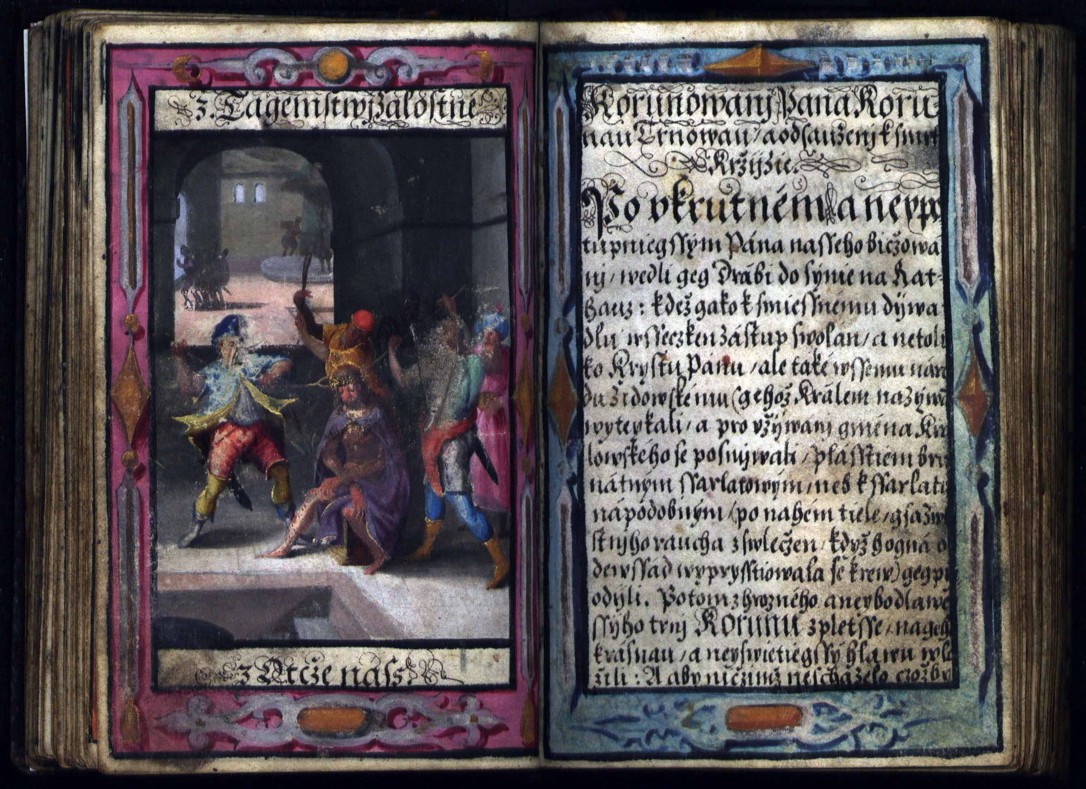 3. Tagemstwij Žalostne
3 Otcže náss
Korunowanj Pana Koru
nau Trnowau / a odsauzenj k smrt
Kržijže.
Po vkrutném / a neypo
tupniegssym Pána nasseho bicžowa
nj / wedli geg Drábi do syme na Rat-
hauz : kdež gako k smiessnemu dýwa
dlu wsseczken zástup swolan / a netoli
ko Krystu Panu / ale také wssemu náro
du Židowskému (gehož Králem nazýwa
wyteykali / a pro vžýwanj gména Kra
lowského se posmýwali / plásstiem bru
nátnym ssarlatowým / neb k ssarlatu
nápodobnym / po nahém tiele / gsa zw
stnjho raucha zswlečen / když hogná o
dewssad wyprysstiowala se krew) geg při
odjli. Potom z hrozného a neybodlawě
ssýho trnj Korunu zpletsse / na geh
krásnau / a neyswietiegssy hlawu wlo
žili : A aby ničimž nescházelo